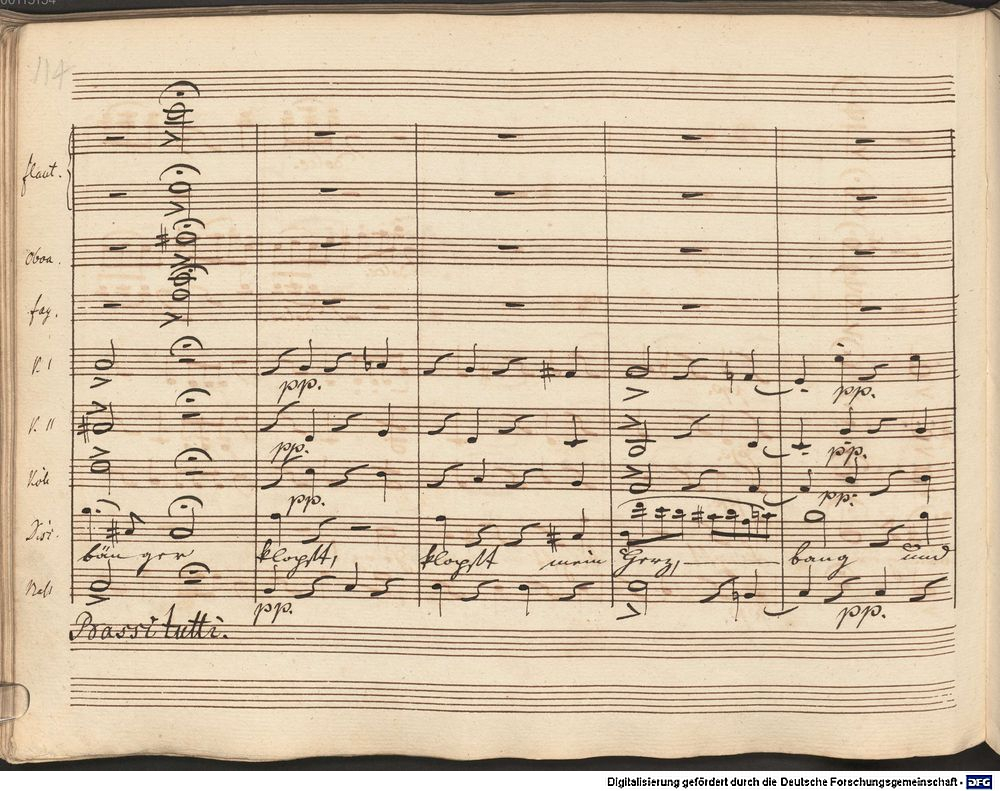 114
flaut.
Oboa.
fag.
V. I
pp. pp.
V. II
pp. pp.
Viole
pp. pp.
Disc.
bän ger klopft, klopft mein Herz, bang und
Bass
pp. pp.
Bassi tutti.
Digitalisierung gefördert durch die Deutsche Forschungsgemeinschaft - DFG